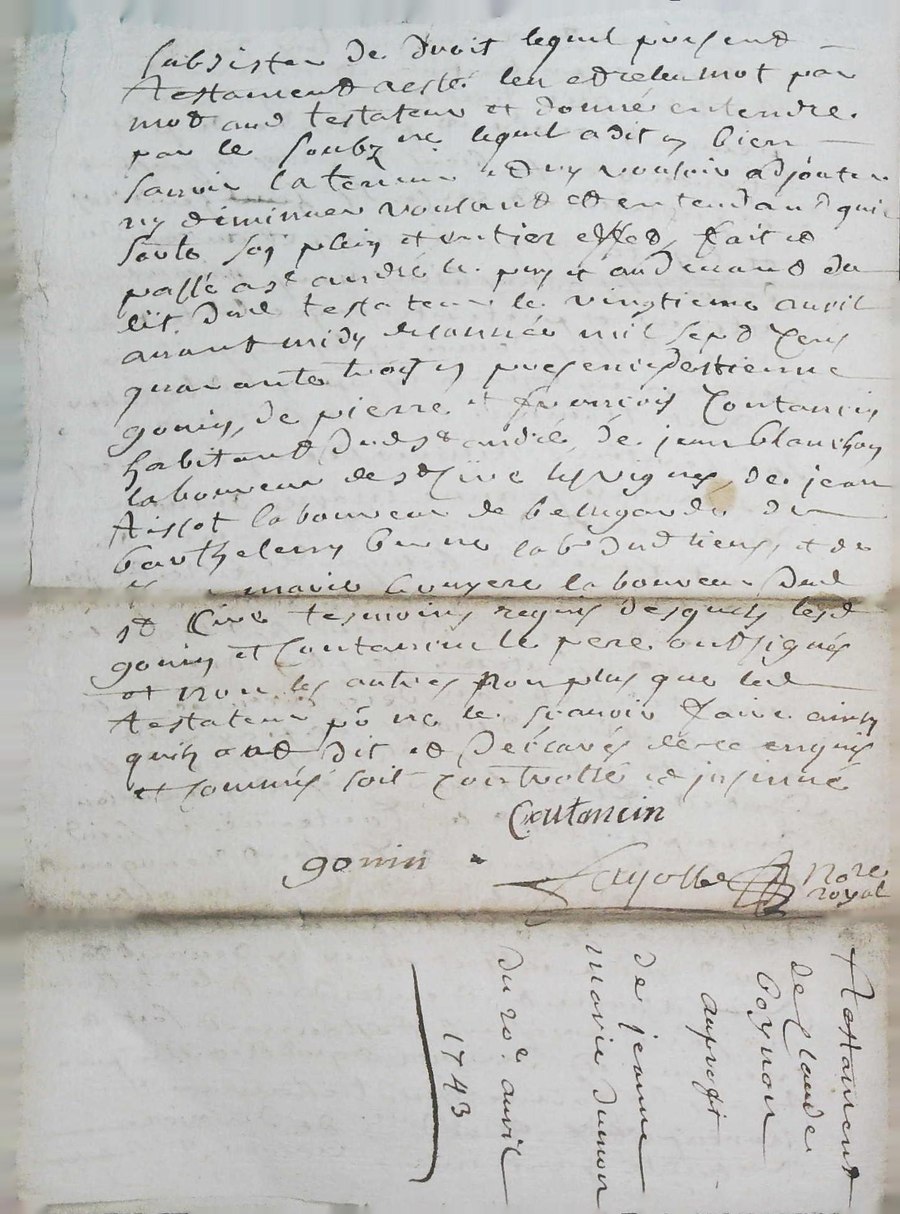 subsister de droit lequel present
testament a esté leu et releu mot par
mot aud testateur et donné entendre
par le soubz ne lequel a dit y bien
savoir la teneur et ny vouloir adjouter
ny diminuer voulant et entendant quil
sorte son plein et entier effed, fait et
passé a st andré le puy et audevant du
lit dud testateur le vingtieme avril
avant midy de lannée mil sept cens
quarante trois, en presence d'estienne
gonin, de pierre et françois Coutancin
habitants dud st andré, de jean blanchon
laboureur de st Cire les vignes, de jean
tissot laboureur de bellegarde de
barthelemy brune lab dud lieu, et de
marie laboureur dud
st Cire tesmoins requis desquels lesd
gonin et Coutancin le pere ont signés
et non les autres non plus que led
testateur po ne le scavoir faire ainsy
quils ont dit et declarés de ce enquis
et sommés soit controllé et insinué
Coutancin
gonin
fayolle Nore
royal
testament
de Claude
Coynon
au profit
de jeanne
marie dumon
du 20e avril
1743